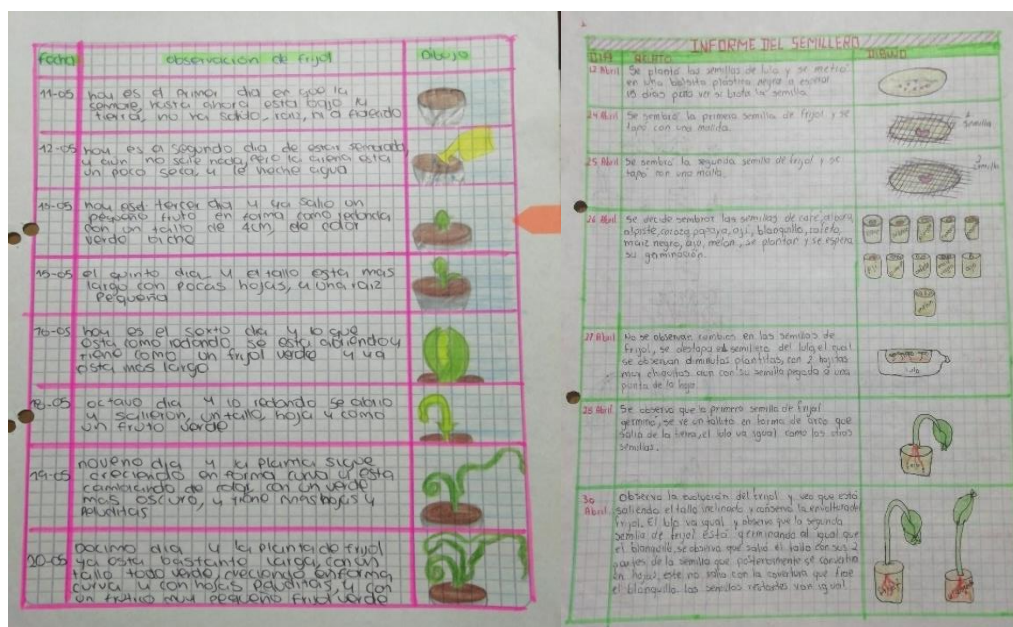 fecha
observación de frijol
Dibujo
11-05
hoy es el primer dia en que lo
sembre, hasta ahora esta bajo la
tierra, no ha salido, raiz, ni a
12-05
hoy es el segundo dia de estar sembrado
y aun no sale nada, pero la arena esta
un poco seca, y le heche agua
hoy es el tercer dia y ya salio un
pequeño fruto en forma como redonda
con un tallo de 4cm, de color
verde biche
15-05
el quinto dia y el tallo esta mas
largo con pocas hojas, y una raiz
pequeña
16-05
hoy es el sexto dia y lo que
esta como redondo se esta abriendo y
tiene como un frijol verde y ya
esta mas largo
18-05
octavo dia y lo redondo se abrio
y salieron, un tallo, hoja y como
un fruto verde
19-05
noveno dia y la planta sigue
creciendo en forma curva y esta
cambiando de color, con un verde
mas oscuro, y tiene mas hojas y
peluditas
20-05
decimo dia y la planta de frijol
ya esta bastante larga, con un
tallo todo verde, creciendo en forma
curva y con hojas pequeñas, y con
un frutico muy pequeño frijol verde
INFORME DEL SEMILLERO
DIA
RELATO
DIBUJO
12 Abril
Se planto las semillas de lulo y se metio
en una bolsita plastica negra a esperar
15 dias para ver si brota la semilla.
24 Abril
Se sembró la primera semilla de frijol y se
tapo con una malla.
semilla
25 Abril
Se sembró la segunda semilla de frijol y se
tapo con una malla.
semilla
26 Abril
Se decide sembrar las semillas de café,
alpiste, papaya, aji, blanquillo,
maiz negro, ajo, melon, se plantan y se espera
su germinación.
27 Abril
No se observan cambios en las semillas de
frijol, se destapa el semillero del lulo el cual
se observan diminutas plantitas, con 2 hojitas
muy chiquitas aun con su semilla pegada a una
punta de la hoja.
lulo
28 Abril
Se observa que la primera semilla de frijol
germinó, se ve un tallito en forma de arco que
salia de la tierra, el lulo va igual como las otras
semillas.
30
Abril
Observo la evolución del frijol y veo que está
saliendo el tallo inclinado y conserva la envoltura del
frijol. El lulo va igual y observo que la segunda
semilla de frijol está germinando al igual que
el blanquillo, se observa que salió el tallo con sus 2
partes de la semilla que posteriormente se convertira
en hojas, este no salio con la curvatura que trae
el blanquillo las semillas restantes van igual